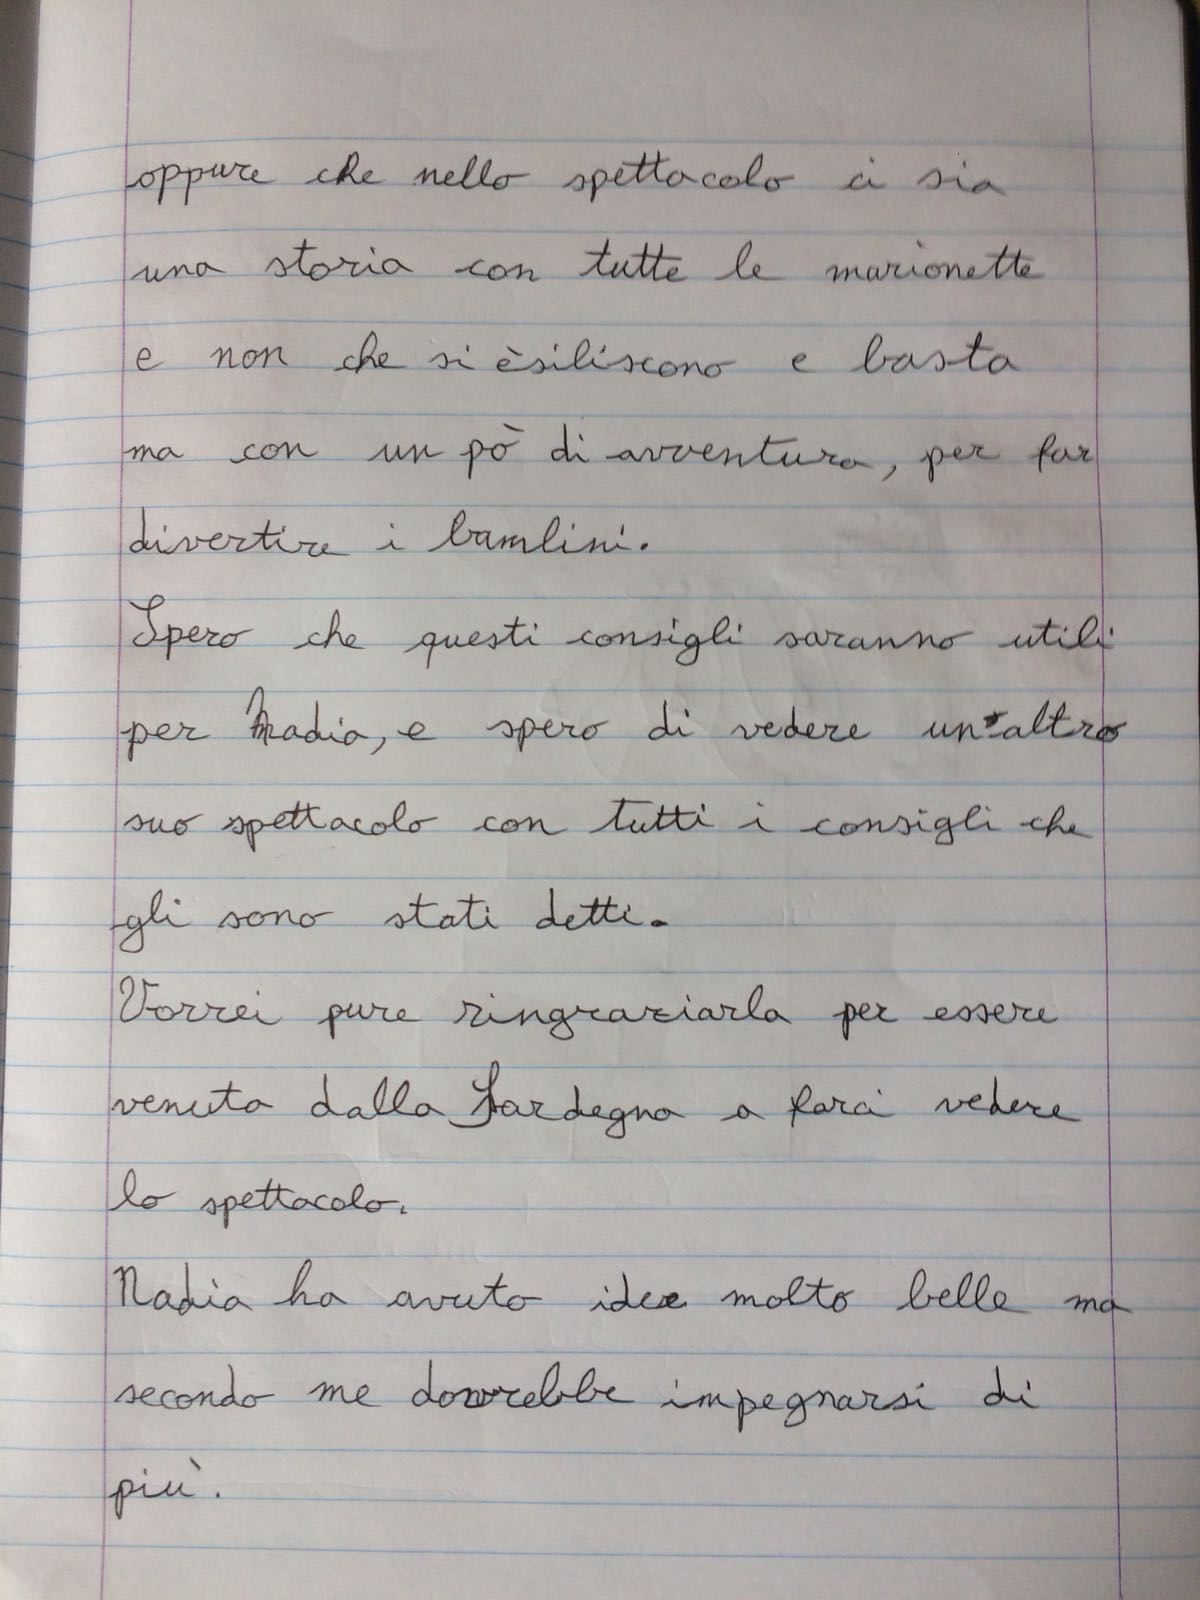 oppure che nello spettacolo ci sia
una storia con tutte le marionette
e non che si èsiliscono e basta
ma con un pò di avventura, per far
divertire i bambini.
Spero che questi consigli saranno utili
per Nadia, e spero di vedere un'altro
suo spettacolo con tutti i consigli che
gli sono stati detti.
Vorrei pure ringraziarla per essere
venuta dalla Sardegna a farci vedere
lo spettacolo.
Nadia ha avuto idee molto belle ma
secondo me dovrebbe impegnarsi di
più.